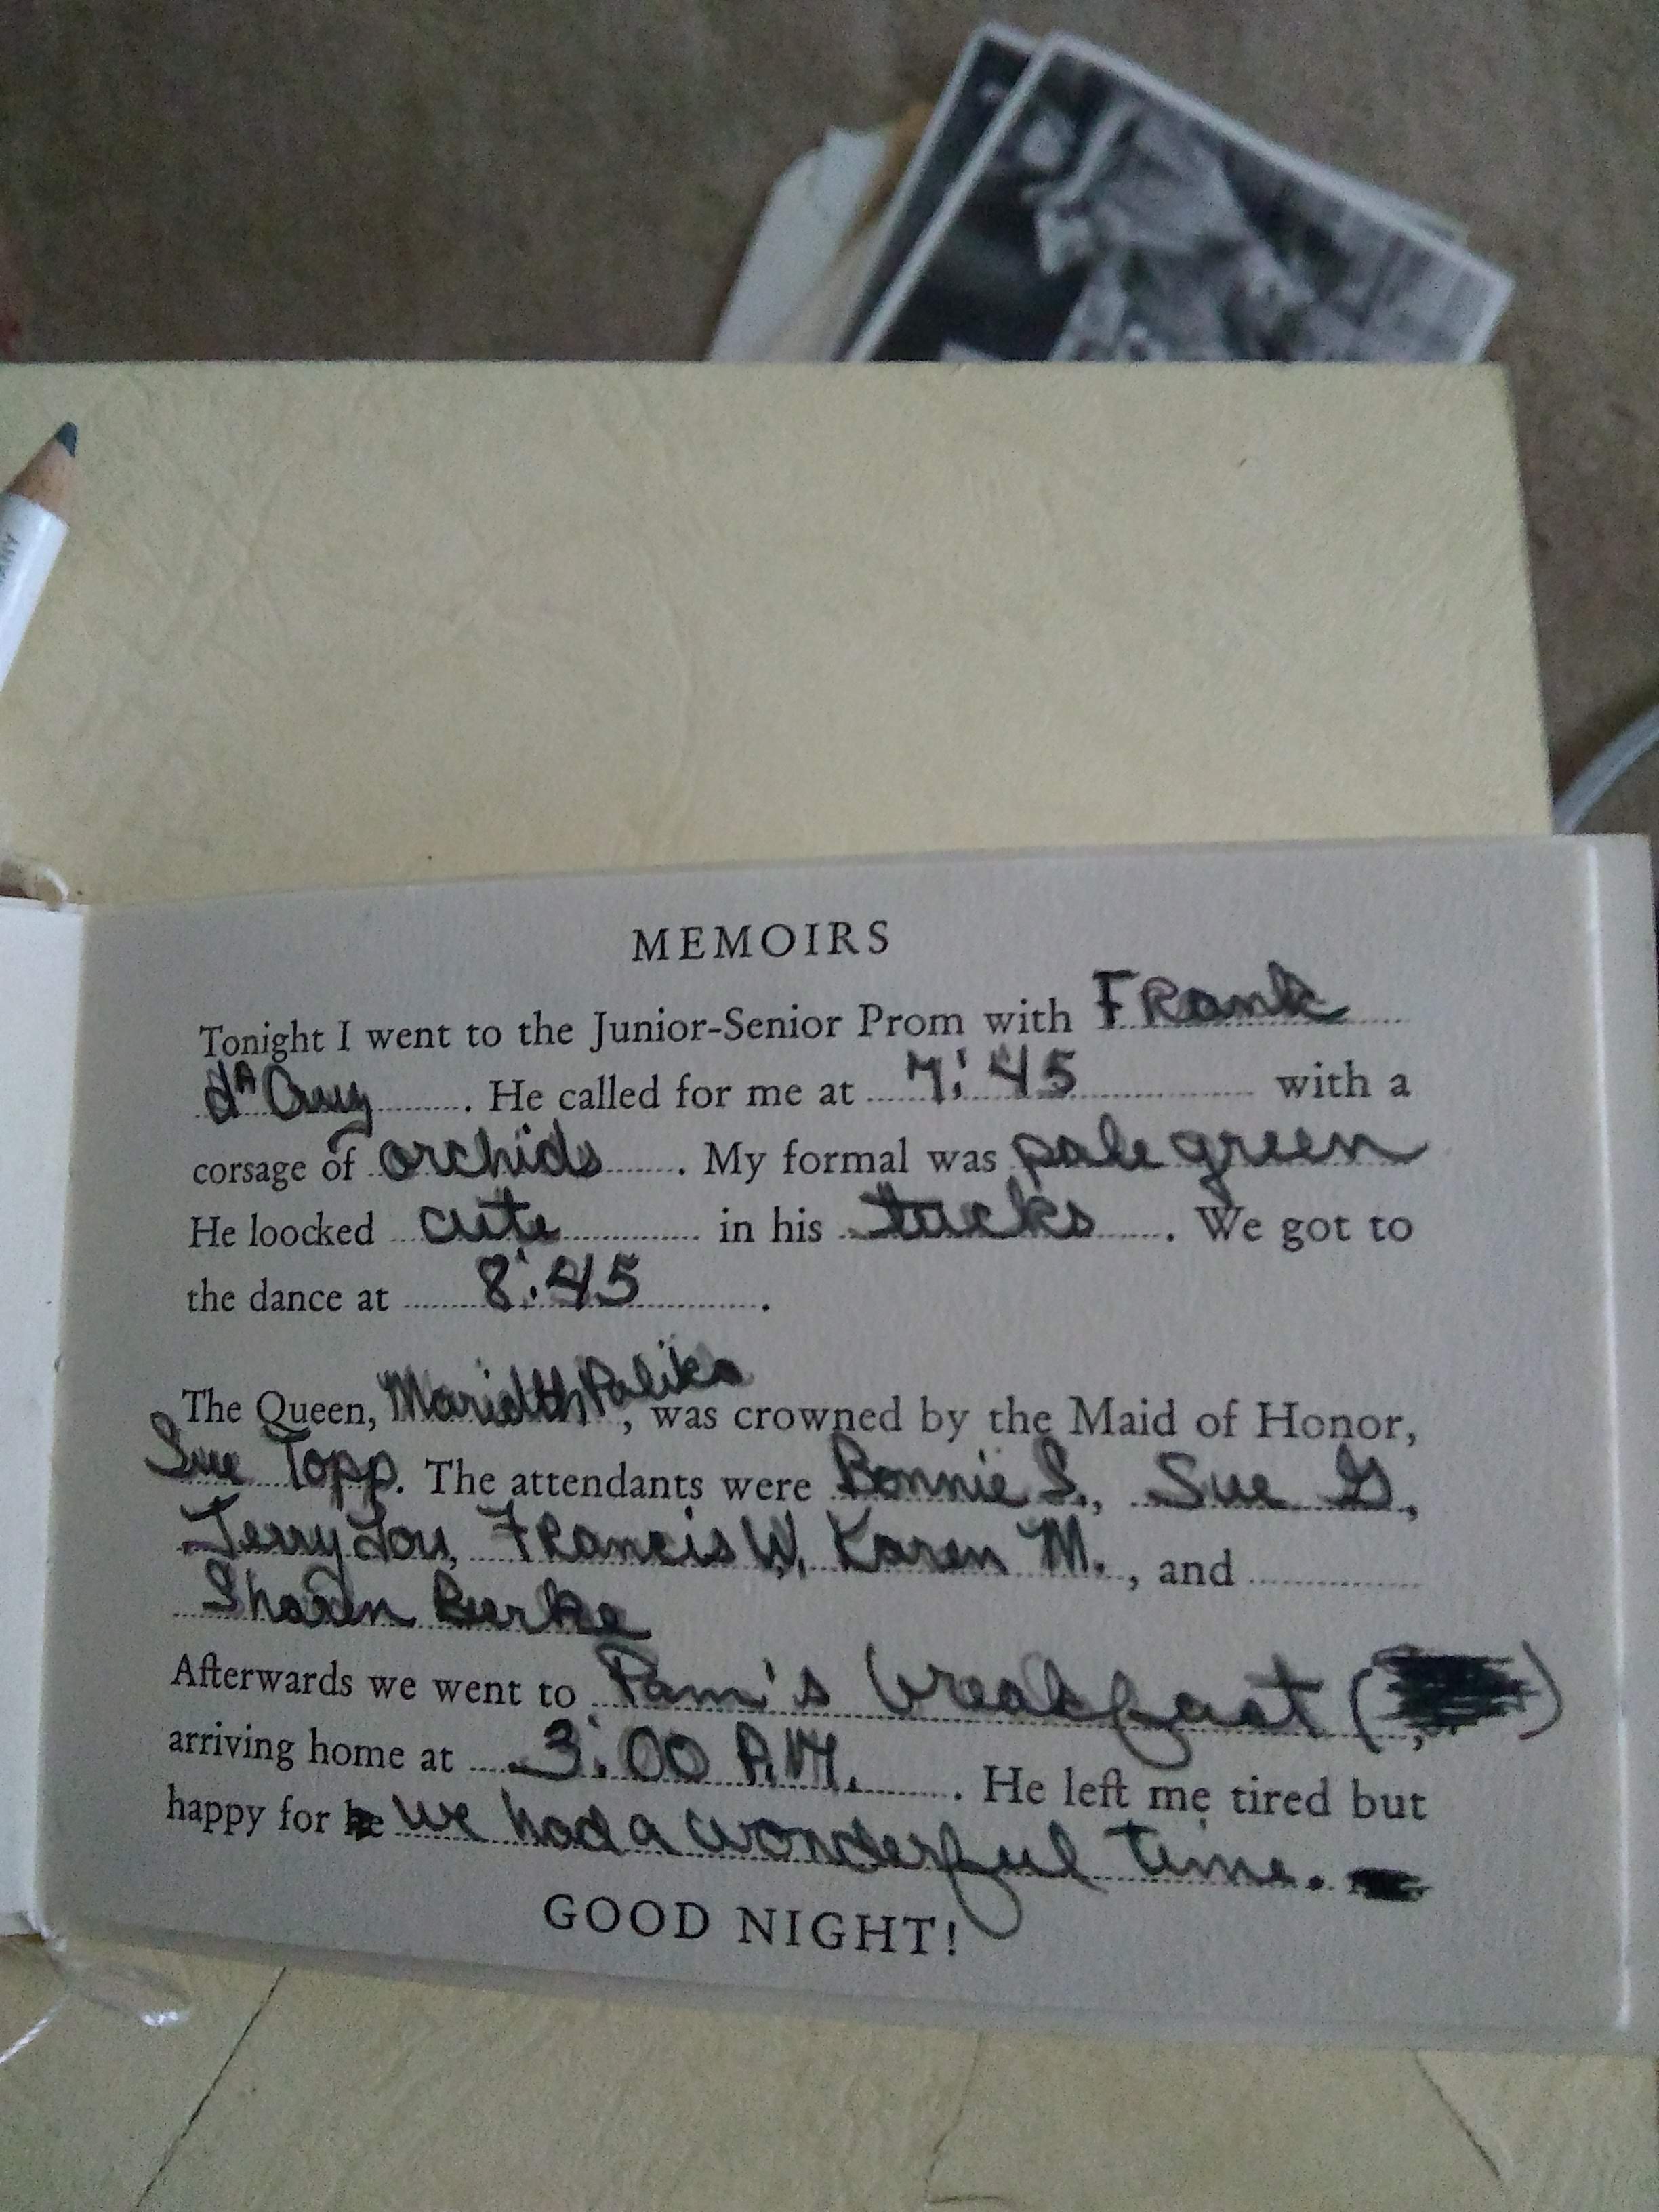 MEMOIRS
Tonight I went to the Junior-Senior Prom with FRank
. He called for me at 7:45 with a
corsage of orchids. My formal was pale green
He loocked cute in his tucks. We got to
the dance at 8:45.
The Queen, , was crowned by the Maid of Honor,
Sue Topp. The attendants were Bonnie S., Sue G,
Terry Lou, FRancis W, Karen M., and
Sharon Burke
Afterwards we went to Pam's breakfast ( ),
arriving home at 3:00 A.M. . He left me tired but
happy for we had a wonderful time.
GOOD NIGHT!